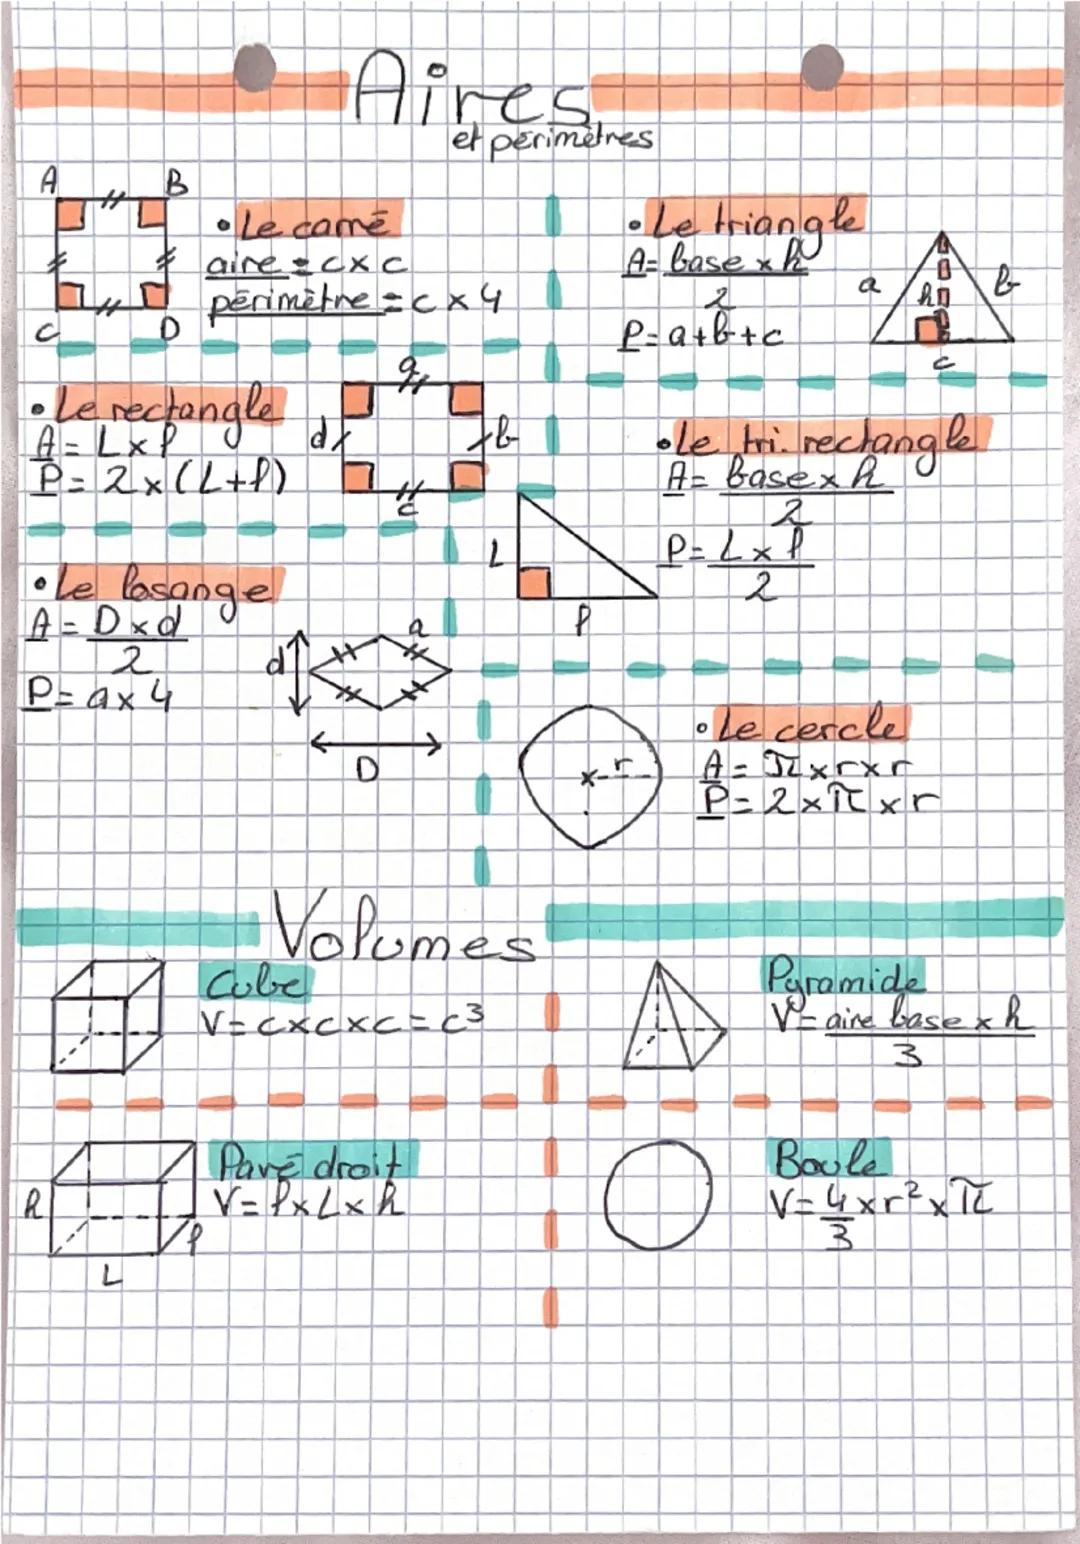 Aires
et périmètres
A B
C D
• Le carré
aire = c x c
périmètre = c x 4
• Le triangle
A = base x h
2
P = a + b + c
a h b
c
• Le rectangle
A = L x l
P = 2 x (L + l)
a
d b
c
• Le tri. rectangle
A = base x h
2
P = L x l
2
L
l
• Le losange
A = D x d
2
P = a x 4
a
d
D
• Le cercle
A = π x r x r
P = 2 x π x r
x r
Volumes
Cube
V = c x c x c = c³
Pyramide
V = aire base x h
3
Pavé droit
V = l x L x h
h
l
L
Boule
V = 4 x r² x π
3